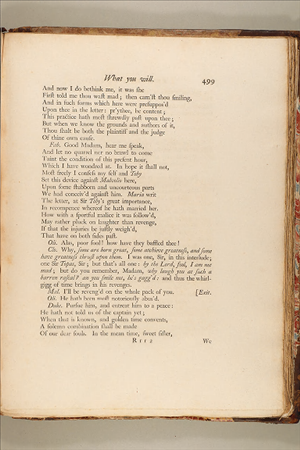 What you will. 499
And now I do bethink me, it was she
First told me thou wast mad; then cam'st thou smiling,
And in such forms which here were presuppos'd
Upon thee in the letter: pr'ythee, be content;
This practice hath most shrewdly past upon thee;
But when we know the grounds and authors of it,
Thou shalt be both the plaintiff and the judge
Of thine own cause.
Fab. Good Madam, hear me speak,
And let no quarrel nor no brawl to come
Taint the condition of this present hour,
Which I have wondred at. In hope it shall not,
Most freely I confess my self and Toby
Set this device against Malvolio here,
Upon some stubborn and uncourteous parts
We had conceiv'd against him. Maria writ
The letter, at Sir Toby's great importance,
In recompence whereof he hath married her.
How with a sportful malice it was follow'd,
May rather pluck on laughter than revenge,
If that the injuries be justly weigh'd,
That have on both sides past.
Oli. Alas, poor fool! how have they baffled thee!
Clo. Why, some are born great, some atchieve greatness, and some
have greatness thrust upon them. I was one, Sir, in this interlude;
one Sir Topas, Sir; but that's all one: by the Lord, fool, I am not
mad; but do you remember, Madam, why laugh you at such a
barren rascal? an you smile not, he's gagg'd: and thus the whirl-
gigg of time brings in his revenges.
Mal. I'll be reveng'd on the whole pack of you. [Exit.
Oli. He hath been most notoriously abus'd.
Duke. Pursue him, and entreat him to a peace:
He hath not told us of the captain yet;
When that is known, and golden time convents,
A solemn combination shall be made
Of our dear souls. In the mean time, sweet sister,
R r r 2 We